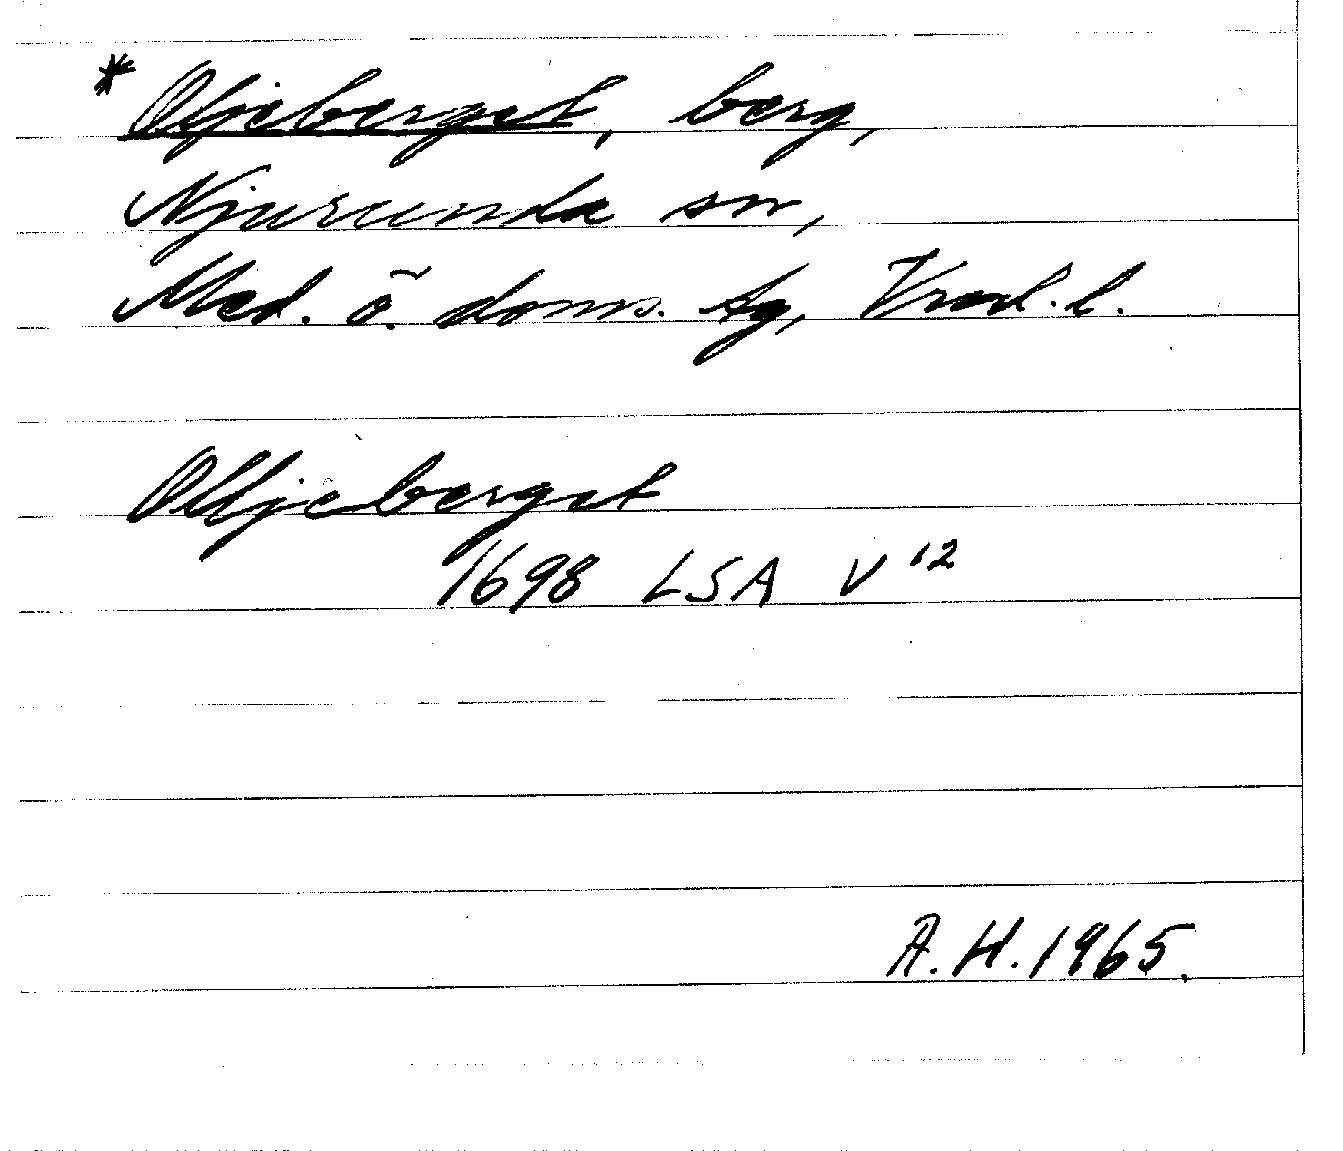 * Oljeberget, berg,
Njurunda sn,
Med. ö. doms. tg, Vnrl. l.
Olljeberget
1698 LSA V 12
A. H. 1965.